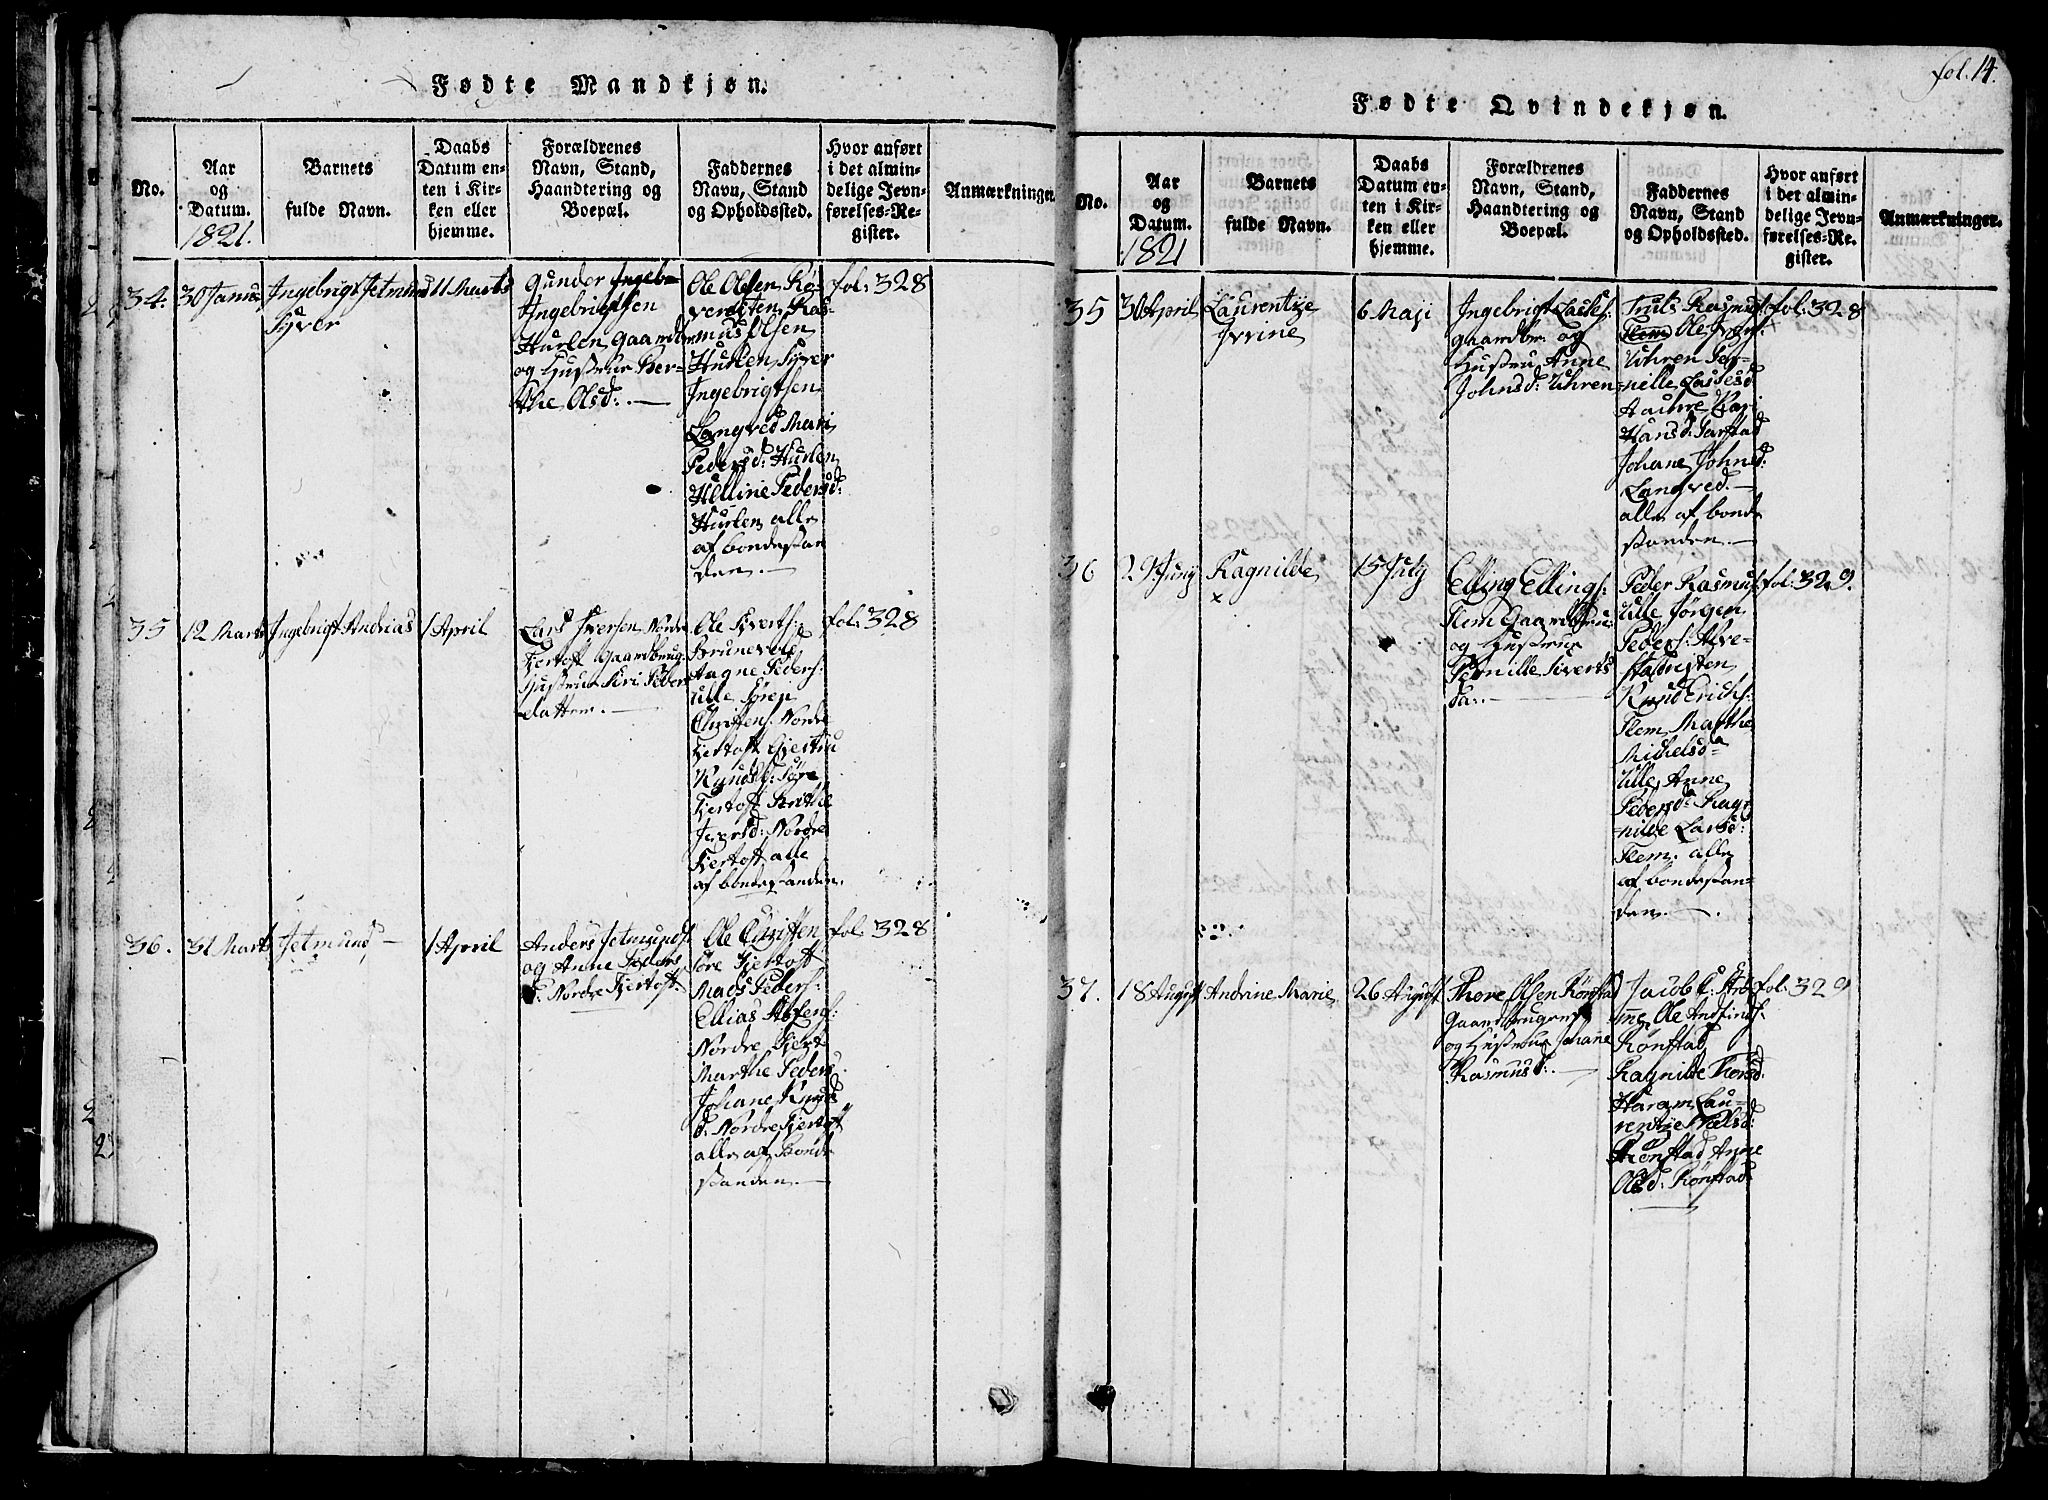 Fødte Mandkjøn.
No.
Aar
og
Datum.
1821.
Barnets
fulde Navn.
Daabs
Datum en-
ten i Kir-
ken eller
hjemme.
Forældrenes
Navn, Stand,
Haandtering og
Boepæl.
Faddernes
Navn, Stand
og Opholdssted.
Hvor anført
i det almin-
delige Jevn-
førelses-Re-
gister.
Anmærkninger
34.
30 Janua
Ingebrigt Jetmund
Syver
11 Marts
Gunder
Ingebrigtsen
Hurlen Gaardbr
og Hustrue Ber-
the Olsd:
Ole Olsen Rø-
vereiten Ras-
mus Olsen
Hurlen Syver
Ingebrigtsen
Langved Mari
Pedersd: Hurlen
Helline Pedersd:
Hurlen alle
af bondestan
den.
fol: 328
35
12 Marts
Ingebrigt Andreas
1 April
Lars Iversen Nordre
Fjertoft Gaardbrug
Hustrue Siri Peders
datter.
Ole Sjverts:
Brunevole
Aagne Peders:
Ulle Sören
Christens: Nordre
Fjertoft Gjertru
Knuds: Söre
Fjertoft Berthe
Iversd: Nordre
Fjertoft alle
af bondestanden.
fol: 328
36.
31 Marts
Jetmund
1 April
Anders Jetmunds:
og Anne Peders
d: Nordre Fjertoft
Ole Christen
Söre Fjertoft
Mads Peders:
Ellias
Nordre Fjert
Marthe Peders
Johane Knuds
d: Nordre Fjertoft
alle af Bonde
standen.
fol: 328
fol. 14.
Fødte Qvindekjøn.
No.
Aar
og
Datum.
1821
Barnets
fulde Navn.
Daabs
Datum en-
ten i Kir-
ken eller
hjemme.
Forældrenes
Navn, Stand,
Haandtering og
Boepæl.
Faddernes
Navn, Stand
og Opholdssted.
Hvor anført
i det almin-
delige Jevn-
førelses-Re-
gister.
Anmærkninger.
35
30 April
Laurentze
Ivrine
6 Maji
Ingebrigt Lasses:
gaardbr. og
Hustru Anne
Johnsd: Uhren
Truls Rasmus:
Flem Ole
Uhren Per-
nille Lassesd
Hauhre Kari
Hansd: Garstad
Johane Johnsd:
Langved.
alle af bonde
standen.
fol: 328
36
29 Juny
Ragnilde
x
15 July
Elling Ellings:
Flem Gaardbrue:
og Hustrue
Pernille Siverts
da.
Peder Rasmus:
Ulle Jörgen
Peders: Alve-
stadresten
Knud Erichs:
Flem Marthe
Michelsda
Ulle Anne
Pedersda Rag-
nilde Larsd:
Flem. alle
af bondestan-
den.
fol: 329.
37.
18 August
Andrine Marie
26 August
Thore Olsen Rönstad
Gaardbruger
og Hustrue Johane
Rasmusd:
Jacob
Ole Andfinds:
Rönstad
Ragnilde Thorsd:
Haram Lau-
rentze Nielsd:
Rönstad Anne
Olsd: Rönstad
fol: 329